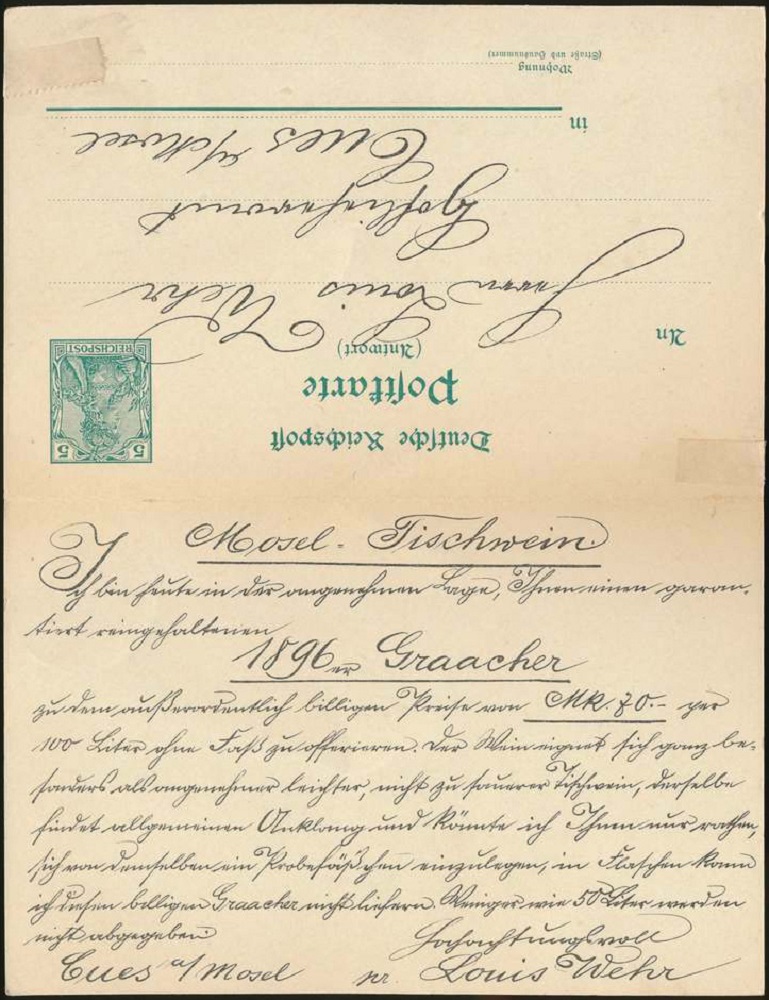 Deutsche Reichspost
Postkarte
(Antwort)
5 5
REICHSPOST
An
Herrn Louis Wehr
Hoflieferant
in Cues a/Mosel
Wohnung
(Straße und Hausnummer)
Mosel-Tischwein.
Ich bin heute in der angenehmen Lage, Ihnen einen garan-
tiert reingehaltenen
1896er Graacher
zu dem außerordentlich billigen Preise von Mk. 70.- per
100 Liter ohne Faß zu offerieren. Der Wein eignet sich ganz be-
sonders als angenehmer leichter, nicht zu saurer Tischwein, derselbe
findet allgemeinen Anklang und könnte ich Ihnen nur rathen,
sich von demselben ein Probefäßchen einzulegen, in Flaschen kann
ich diesen billigen Graacher nicht liefern. Weniger wie 50 Liter werden
nicht abgegeben
Hochachtungsvoll
Cues a/Mosel Louis Wehr